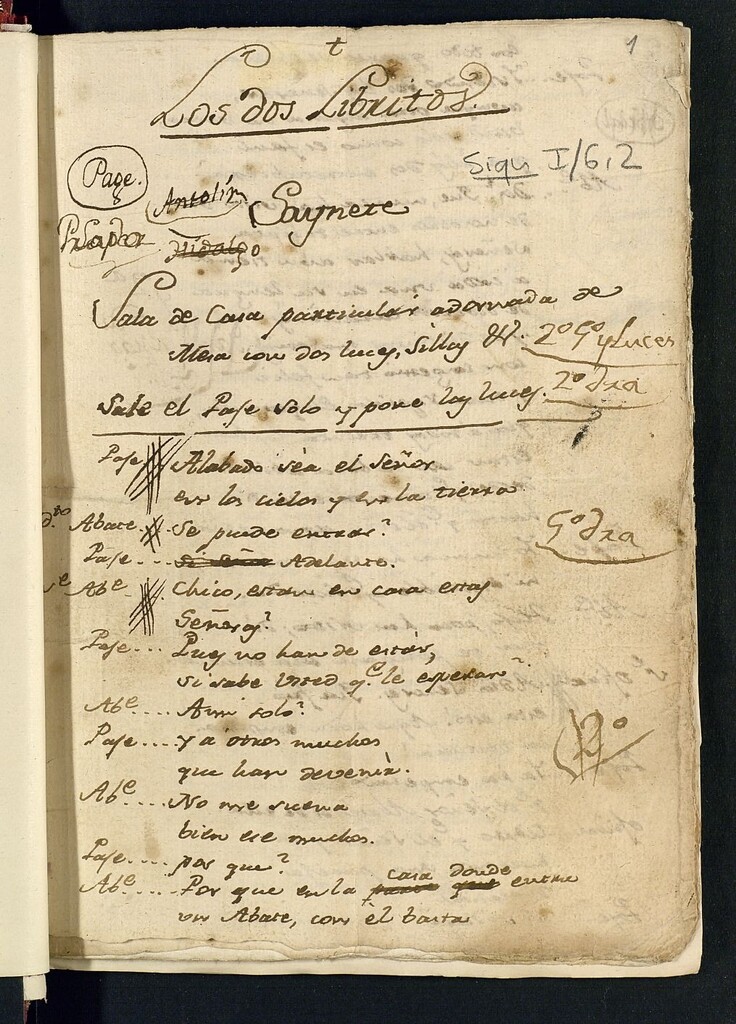 1
Los dos Libritos.
Sign I/6,2
Page.
Antolín
Saynete
Hidalgo
Sala de Casa particular adornada de
Mesa con dos luces, Sillas &c. 2º Gº y Luces
Sale el Paje solo y pone las luces. 2º dra
Paje Alabado séa el Señor
en los cielos y en la tierra
Abate.. Se puede entrar? 5º dra
Paje.... si señor Adelante.
Abe.. Chico, estan en casa estas
Señoras?
Paje... Pues no han de estár,
si sabe Usted qe. le esperan?
Abe.... A mi solo?
Paje.... y a otros muchos 2º
que han de venir.
Abe.... No me suena
bien ese muchos.
Paje.... por que?
Abe.... Por que en la parte que casa donde entra
un Abate, con él basta